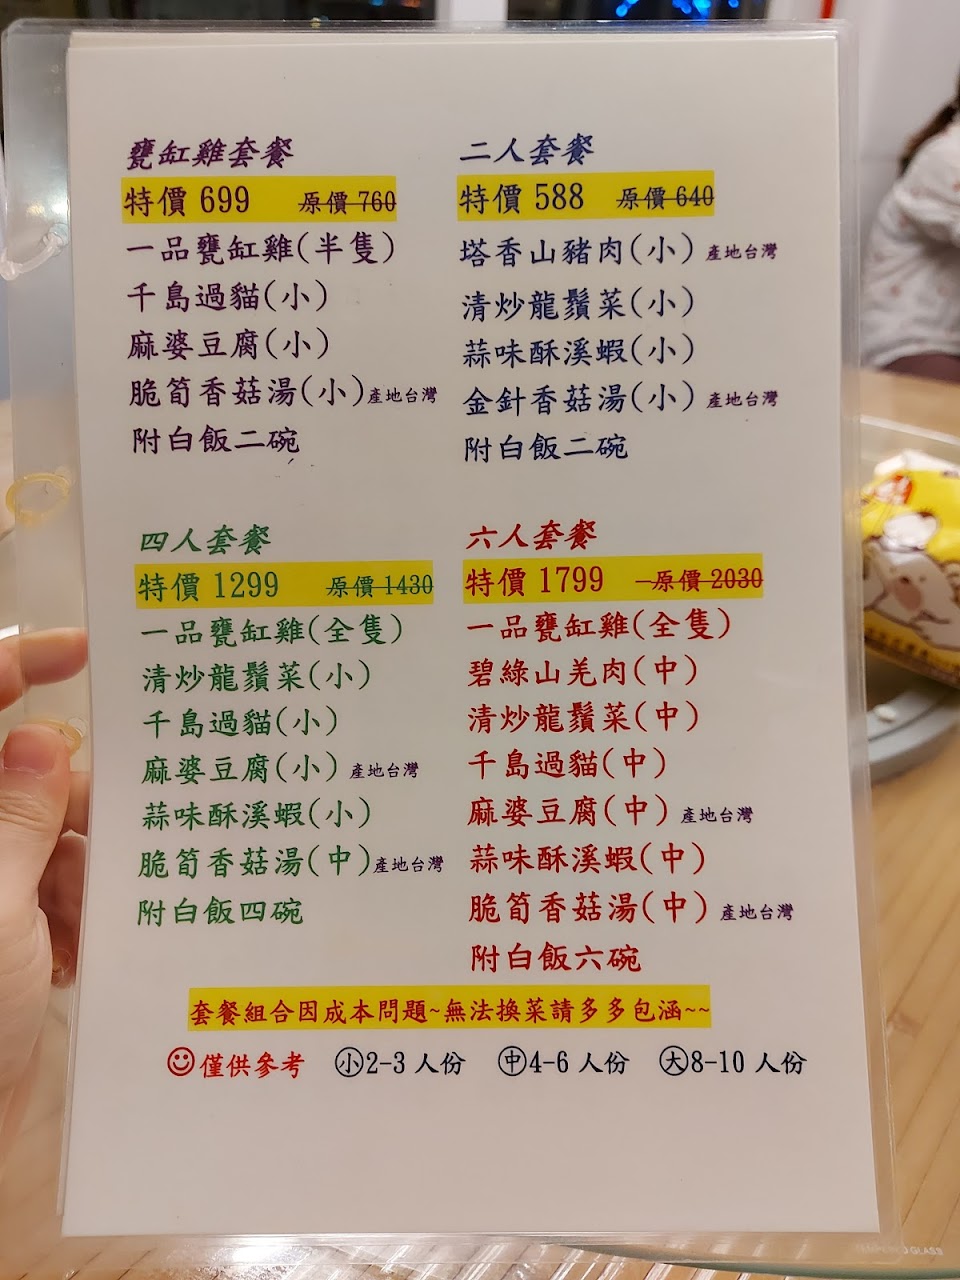 甕缸雞套餐
特價 699 原價 760
一品甕缸雞(半隻)
千島過貓(小)
麻婆豆腐(小)
脆筍香菇湯(小)產地台灣
附白飯二碗
二人套餐
特價 588 原價 640
塔香山豬肉(小) 產地台灣
清炒龍鬚菜(小)
蒜味酥溪蝦(小)
金針香菇湯(小) 產地台灣
附白飯二碗
四人套餐
特價 1299 原價 1430
一品甕缸雞(全隻)
清炒龍鬚菜(小)
千島過貓(小)
麻婆豆腐(小) 產地台灣
蒜味酥溪蝦(小)
脆筍香菇湯(中)產地台灣
附白飯四碗
六人套餐
特價 1799 原價 2030
一品甕缸雞(全隻)
碧綠山羌肉(中)
清炒龍鬚菜(中)
千島過貓(中)
麻婆豆腐(中) 產地台灣
蒜味酥溪蝦(中)
脆筍香菇湯(中) 產地台灣
附白飯六碗
套餐組合因成本問題~無法換菜請多多包涵~~
僅供參考 小2-3 人份 中4-6 人份 大8-10 人份